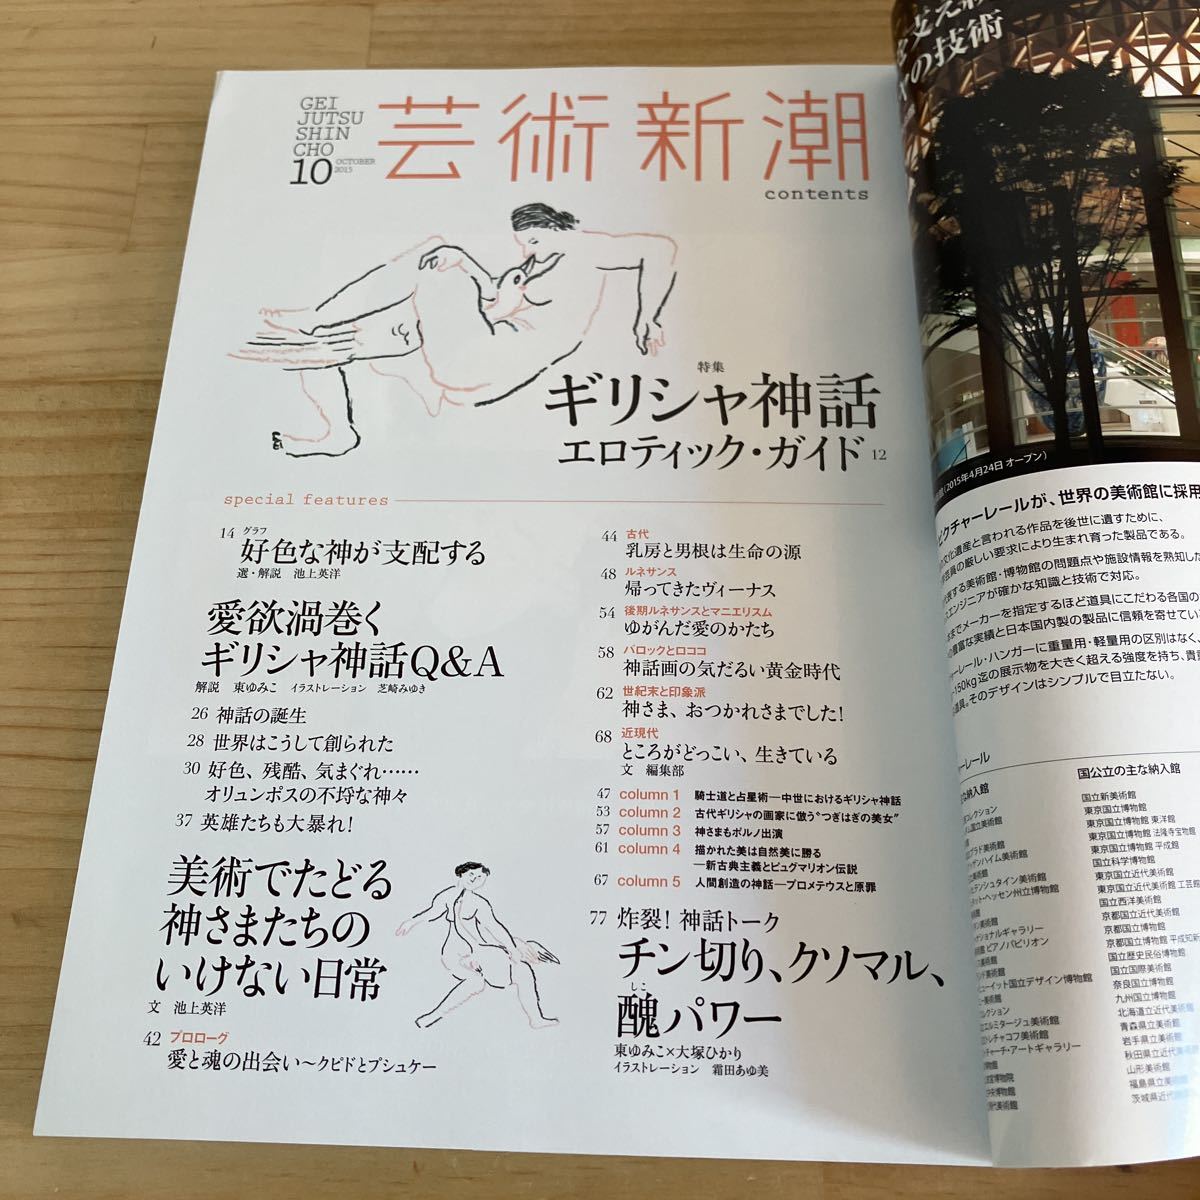 GEI
JUTSU
SHIN
CHO
10
OCTOBER
2015
芸術新潮
contents
特集
ギリシャ神話
エロティック・ガイド 12
special features
14 グラフ
好色な神が支配する
選・解説 池上英洋
愛欲渦巻く
ギリシャ神話Q&A
解説 東ゆみこ イラストレーション 芝崎みゆき
26 神話の誕生
28 世界はこうして創られた
30 好色、残酷、気まぐれ……
オリュンポスの不埒な神々
37 英雄たちも大暴れ!
美術でたどる
神さまたちの
いけない日常
文 池上英洋
42 プロローグ
愛と魂の出会い〜クピドとプシュケー
44 古代
乳房と男根は生命の源
48 ルネサンス
帰ってきたヴィーナス
54 後期ルネサンスとマニエリスム
ゆがんだ愛のかたち
58 バロックとロココ
神話画の気だるい黄金時代
62 世紀末と印象派
神さま、おつかれさまでした!
68 近現代
ところがどっこい、生きている
文 編集部
47 column 1 騎士道と占星術―中世におけるギリシャ神話
53 column 2 古代ギリシャの画家に倣う"つぎはぎの美女"
57 column 3 神さまもポルノ出演
61 column 4 描かれた美は自然美に勝る
―新古典主義とピュグマリオン伝説
67 column 5 人間創造の神話―プロメテウスと原罪
77 炸裂! 神話トーク
チン切り、クソマル、
しこ
醜パワー
東ゆみこ×大塚ひかり
イラストレーション 霜田あゆ美
の技術
(2015年4月24日 オープン)
ピクチャーレールが、世界の美術館に採用
文化遺産と言われる作品を後世に遺すために、
芸員の厳しい要求により生まれ育った製品である。
する美術館・博物館の問題点や施設情報を熟知した
エンジニアが確かな知識と技術で対応。
までメーカーを指定するほど道具にこだわる各国の
豊富な実績と日本国内製の製品に信頼を寄せてい
ーレール・ハンガーに重量用・軽量用の区別はなく、
150kg迄の展示物を大きく超える強度を持ち、貴重
具。そのデザインはシンプルで目立たない。
ーレール
な納入館
コレクション
美術館
プラド美術館
ゲンハイム美術館
デンシュタイン美術館
ット・ヘッセン州立博物館
ショナルギャラリー
館 ピアノパビリオン
美術館
ューイット国立デザイン博物館
美術館
コレクション
エルミタージュ美術館
トレチャコフ美術館
チャーチ・アートギャラリー
国公立の主な納入館
国立新美術館
東京国立博物館
東京国立博物館 東洋館
東京国立博物館 法隆寺宝物館
東京国立博物館 平成館
国立科学博物館
東京国立近代美術館
東京国立近代美術館 工芸館
国立西洋美術館
京都国立近代美術館
京都国立博物館
京都国立博物館 平成知新
国立歴史民俗博物館
国立国際美術館
奈良国立博物館
九州国立博物館
北海道立近代美術
青森県立美術館
岩手県立美術館
秋田県立近代美
山形美術館
福島県立美術
茨城県近代